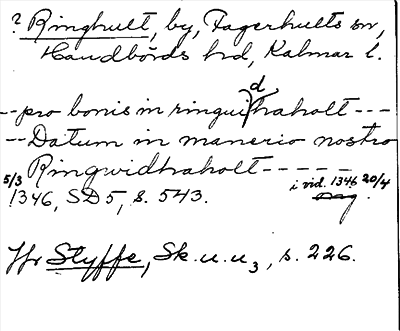 ? Ringhult, by, Fagerhults sn,
Handbörds hd, Kalmar l.
--pro bonis in ringuidhaholt ---
--Datum in manerio nostro
Ringwidhaholt-----
5/3 1346, SD 5, s. 543. i vid. 1346 20/4
Jfr Styffe, Sk.u.u3, s. 226.